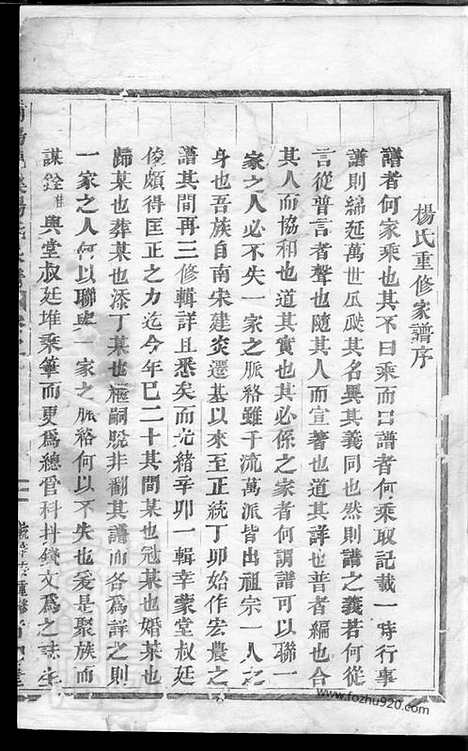 楊氏重修家譜序
譜者何家乘也不曰乘而曰譜者何乘取記載一時行事
譜則綿延萬世瓜瓞其名異其義同也然則譜之義若何從
言從普言者聲也隨其人而宣著也道其詳也普者編也合
其人而協和也其實也其必係之家者何謂譜可以聯一
家之人必不失一家之脈絡雖千流萬派皆出祖宗一人之
身也吾族自南宋建炎遷基以來至正統丁卯始作宏農之
譜其間再三修輯詳且悉矣而光緒辛卯一輯幸蒙堂叔廷
俊頗得匡正之力迄今年已二十其間某也冠某也婚某也
歸某也葬某也添丁某也樞嗣駾非翻其譜而各為詳之則
一家之人何以聯與一家之脈絡何以不失也爰是聚族而
謀銓 興堂叔廷堆秉筆而更為總管科抖錢文為之
重修
www.fozhu920.com